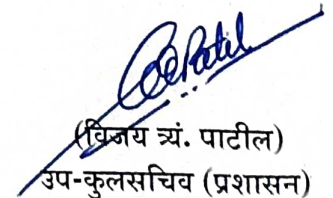 (विजय त्र्यं. पाटील)
उप-कुलसचिव (प्रशासन)